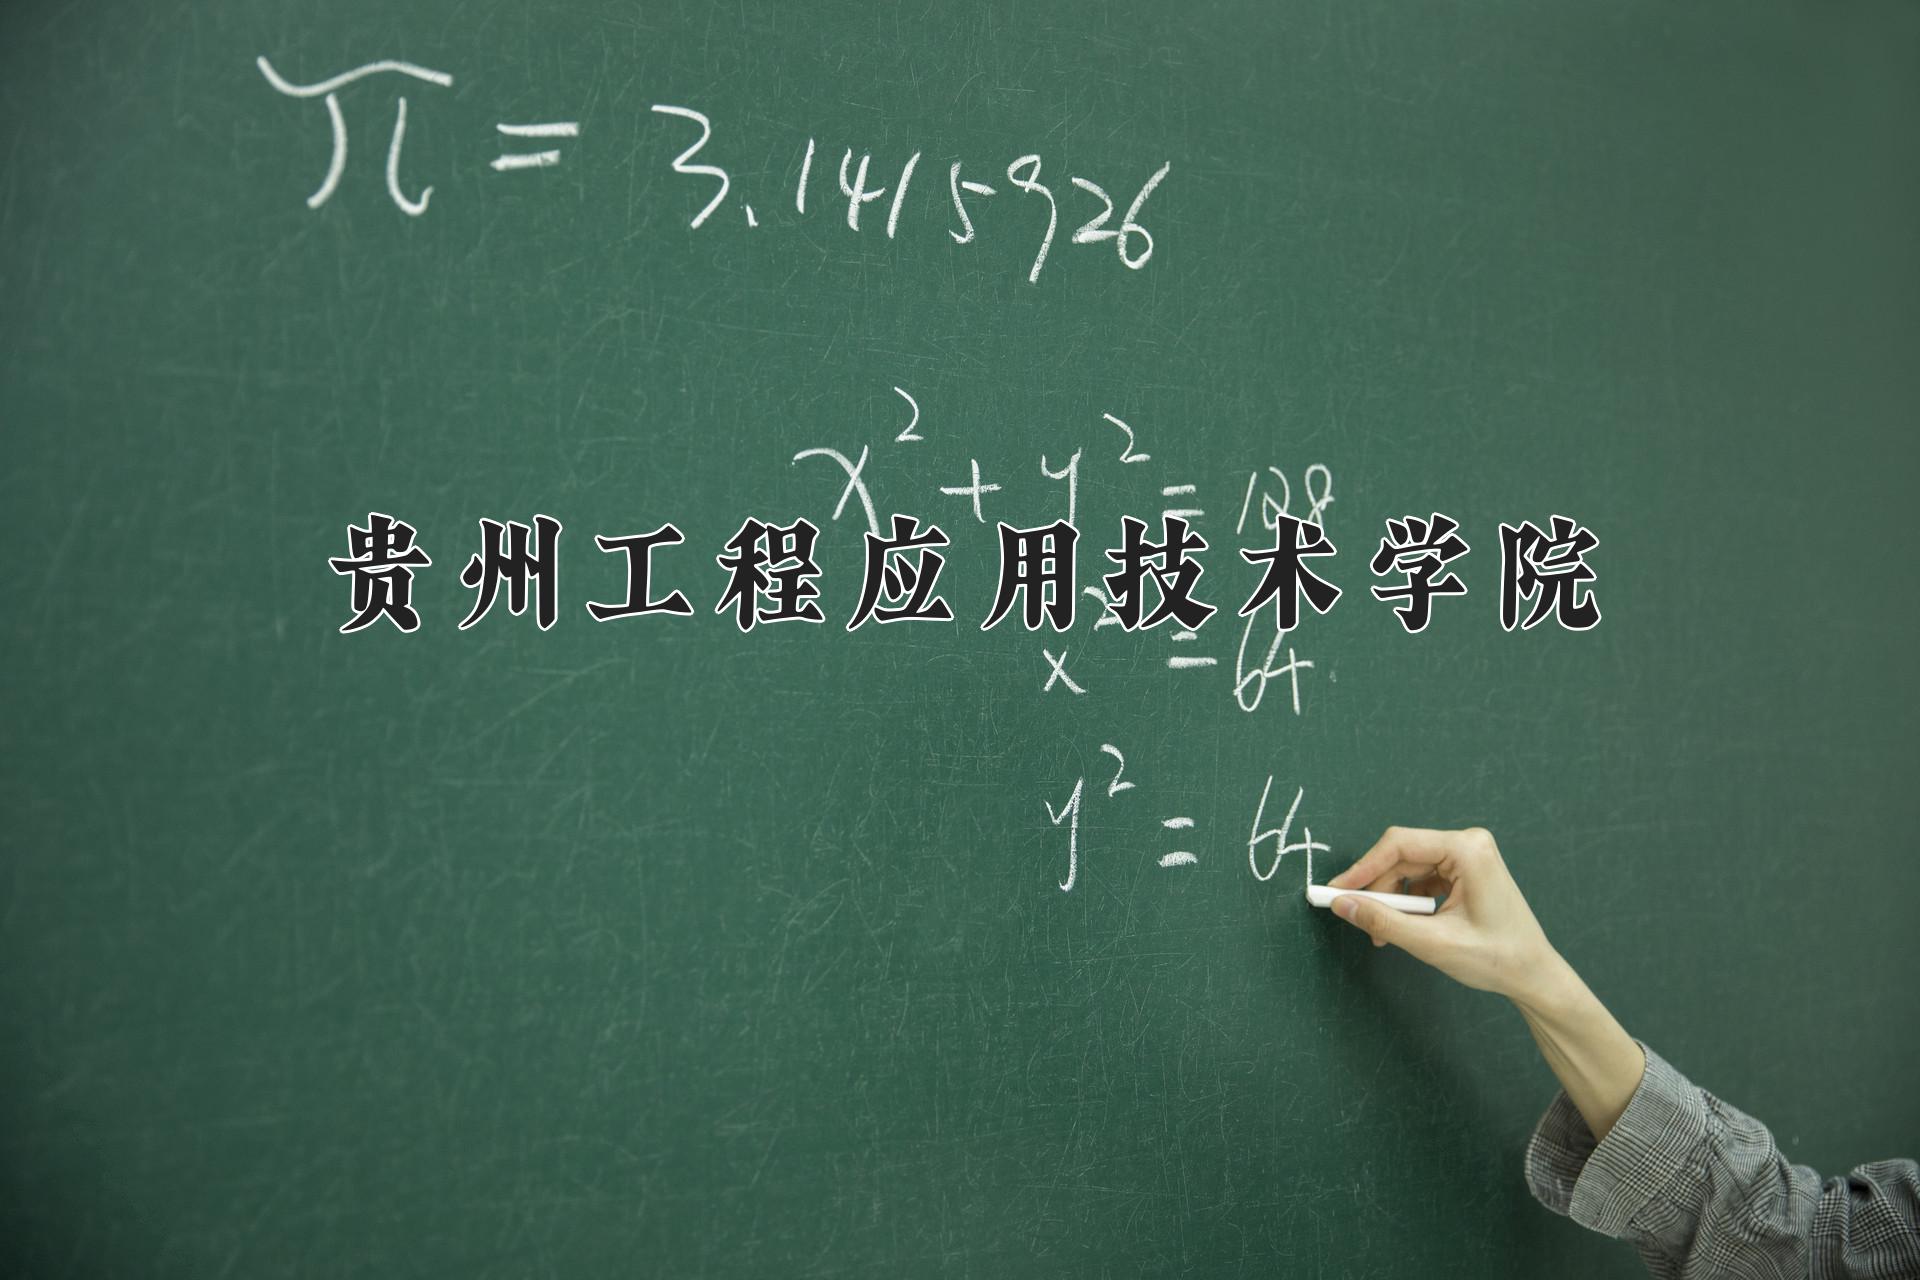 π = 3.1415926
x² + y² = 128
贵州工程应用技术学院
x² = 64
y² = 64